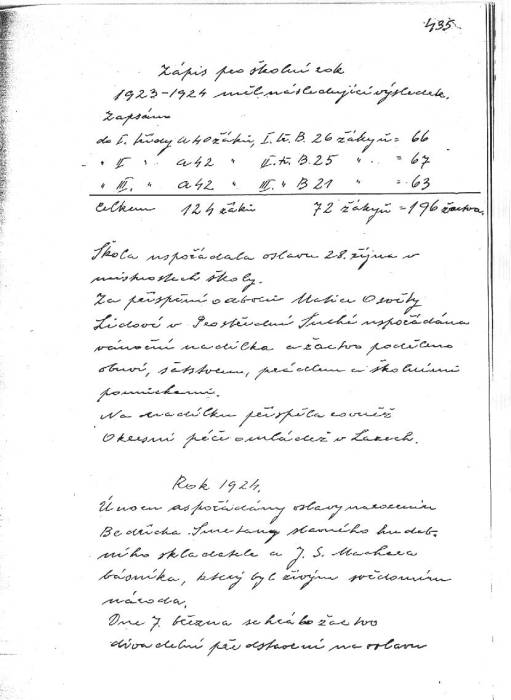 435.
Zápis pro školní rok
1923-1924 měl následující výsledek.
Zapsáno
do I. třídy A 40 žáků, I. tř. B. 26 žákyň = 66
" II " . A 42 " II. tř. B. 25 " . = 67
" III. " A 42 " III. " B 21 " = 63
Celkem 124 žáků 72 žákyň = 196 žactva.
Škola uspořádala oslavu 28. října v
místnostech školy.
Za přispění odboru Matice Osvěty
Lidové v Prostřední Suché uspořádána
vánoční nadílka a žactvo poděleno
obuví, šatstvem, prádlem a školními
pomůckami.
Na nadílku přispěla rovněž
Okresní péče o mládež v Lazech.
Rok 1924.
Únoru uspořádány oslavy narozenin
Bedřicha Smetany slavného hudeb-
ního skladatele a J. S. Machara
básníka, který byl živým svědomím
národa.
Dne 7. března sehrálo žactvo
divadelní představení na oslavu